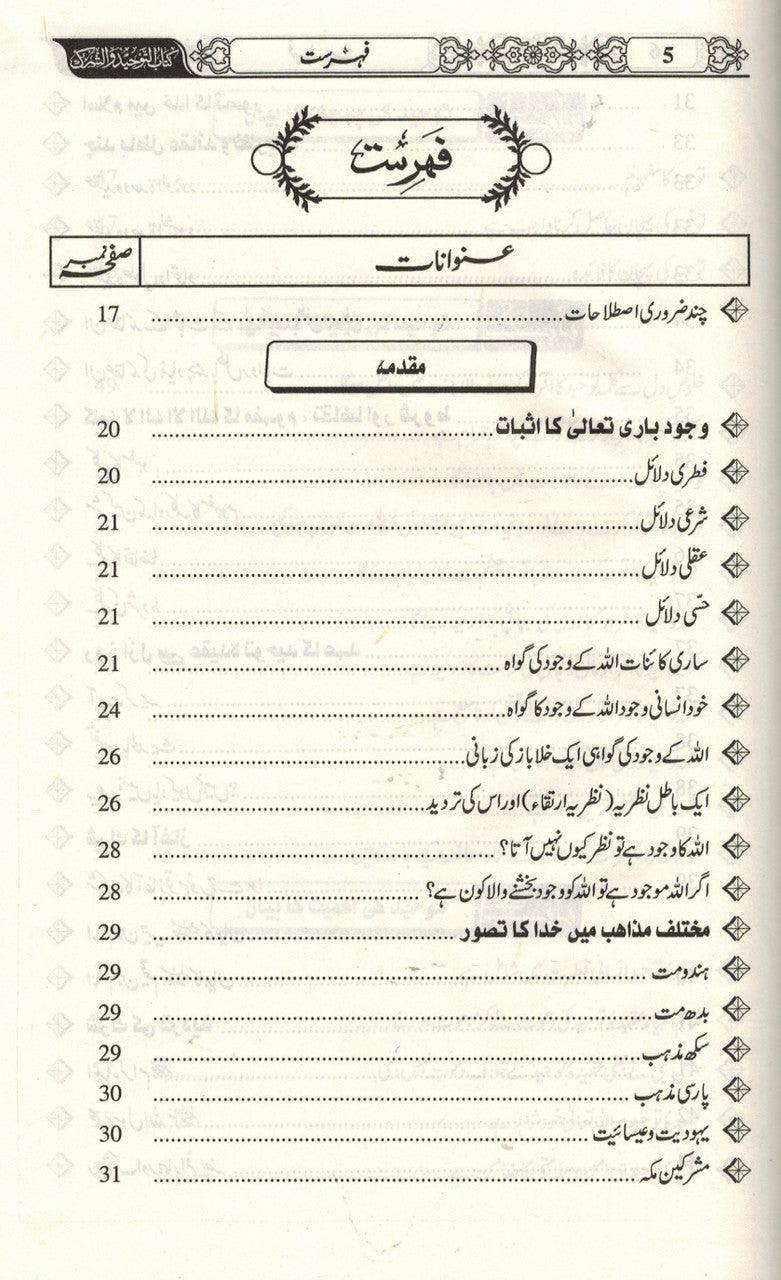 5 فہرست كتاب التوحيد والشرك
فہرست
عنوانات صفحہ نمبر
چند ضروری اصطلاحات 17
مقدمہ
وجود باری تعالیٰ کا اثبات 20
فطری دلائل 20
شرعی دلائل 21
عقلی دلائل 21
حسّی دلائل 21
ساری کائنات اللہ کے وجود کی گواہ 21
خود انسانی وجود اللہ کے وجود کا گواہ 24
اللہ کے وجود کی گواہی ایک خلا باز کی زبانی 26
ایک باطل نظریہ (نظریہ ارتقاء) اور اس کی تردید 26
اللہ کا وجود ہے تو نظر کیوں نہیں آتا؟ 28
اگر اللہ موجود ہے تو اللہ کو وجود بخشنے والا کون ہے؟ 28
مختلف مذاہب میں خدا کا تصور 29
ہندومت 29
بدھ مت 29
سکھ مذہب 29
پارسی مذہب 30
یہودیت وعیسائیت 30
مشرکین مکہ 31